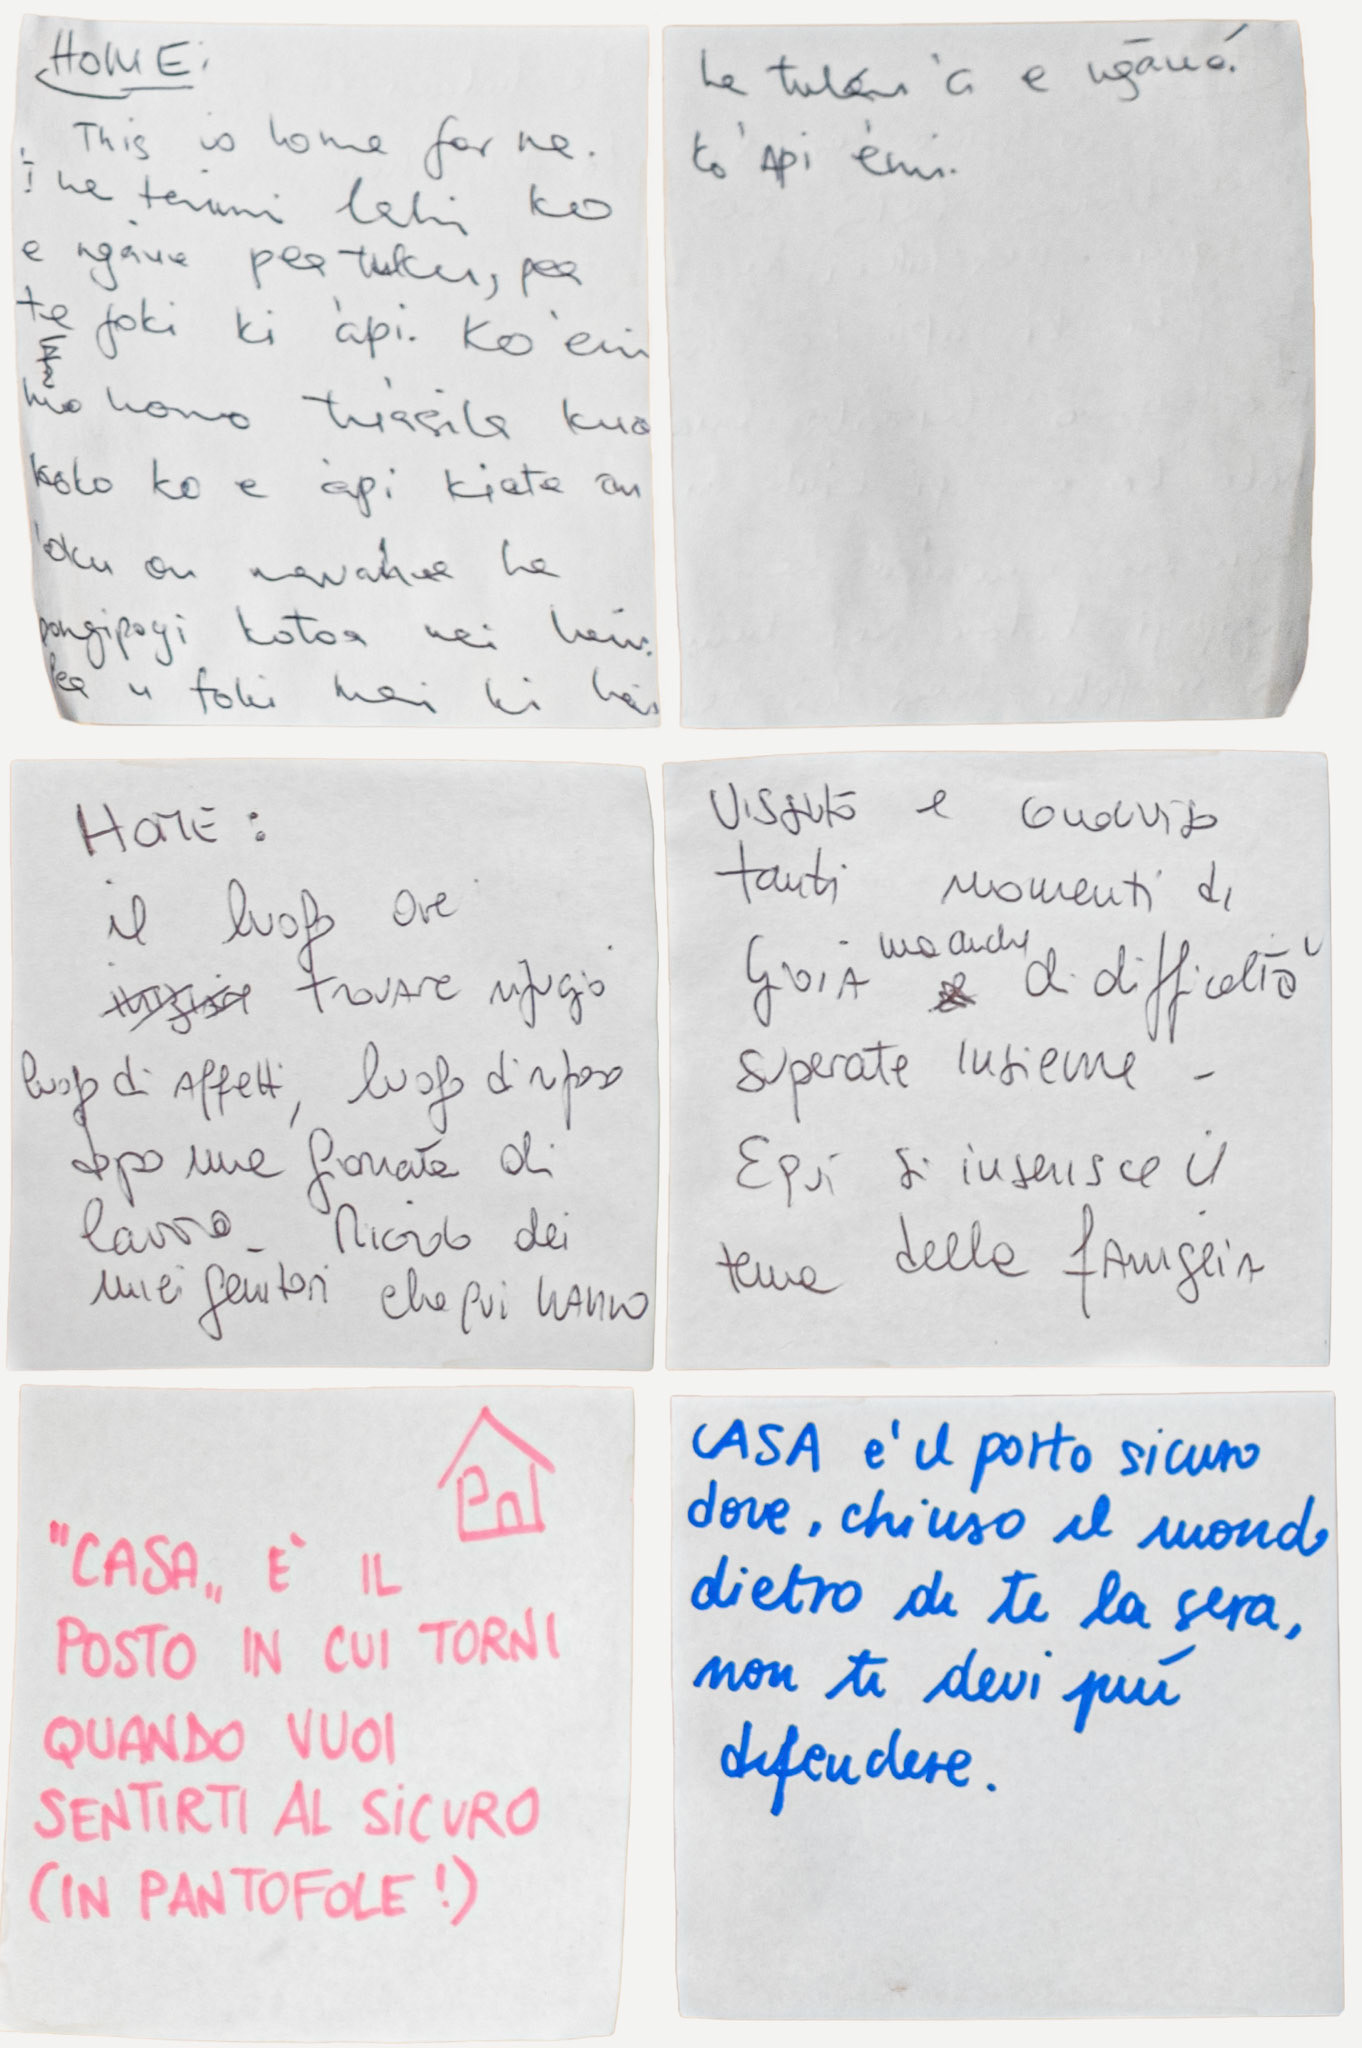 HOME:
This is home for me.
he taimi lahi ko
e ngāue pea tuku, pea
te foki ki 'api. Ko 'eni
mo homo kuo
kolo ko e 'api kiate au
'oku ou he
pongipogi kotoa nei heni.
Pea u foki mai ki heni
he e ngāué.
ko 'Api 'eni.
HOME:
il luogo ove
trovare rifugio
luogo di affetti, luogo di riposo
dopo una giornata di
lavoro - Ricordo dei
miei genitori che qui hanno
Vissuto e condiviso
tanti momenti di
Gioia ma anche di difficoltà
superate insieme -
E qui si inserisce il
tema della famiglia
"CASA" È IL
POSTO IN CUI TORNI
QUANDO VUOI
SENTIRTI AL SICURO
(IN PANTOFOLE!)
CASA e' il porto sicuro
dove, chiuso il mondo
dietro di te la sera,
non ti devi più
difendere.